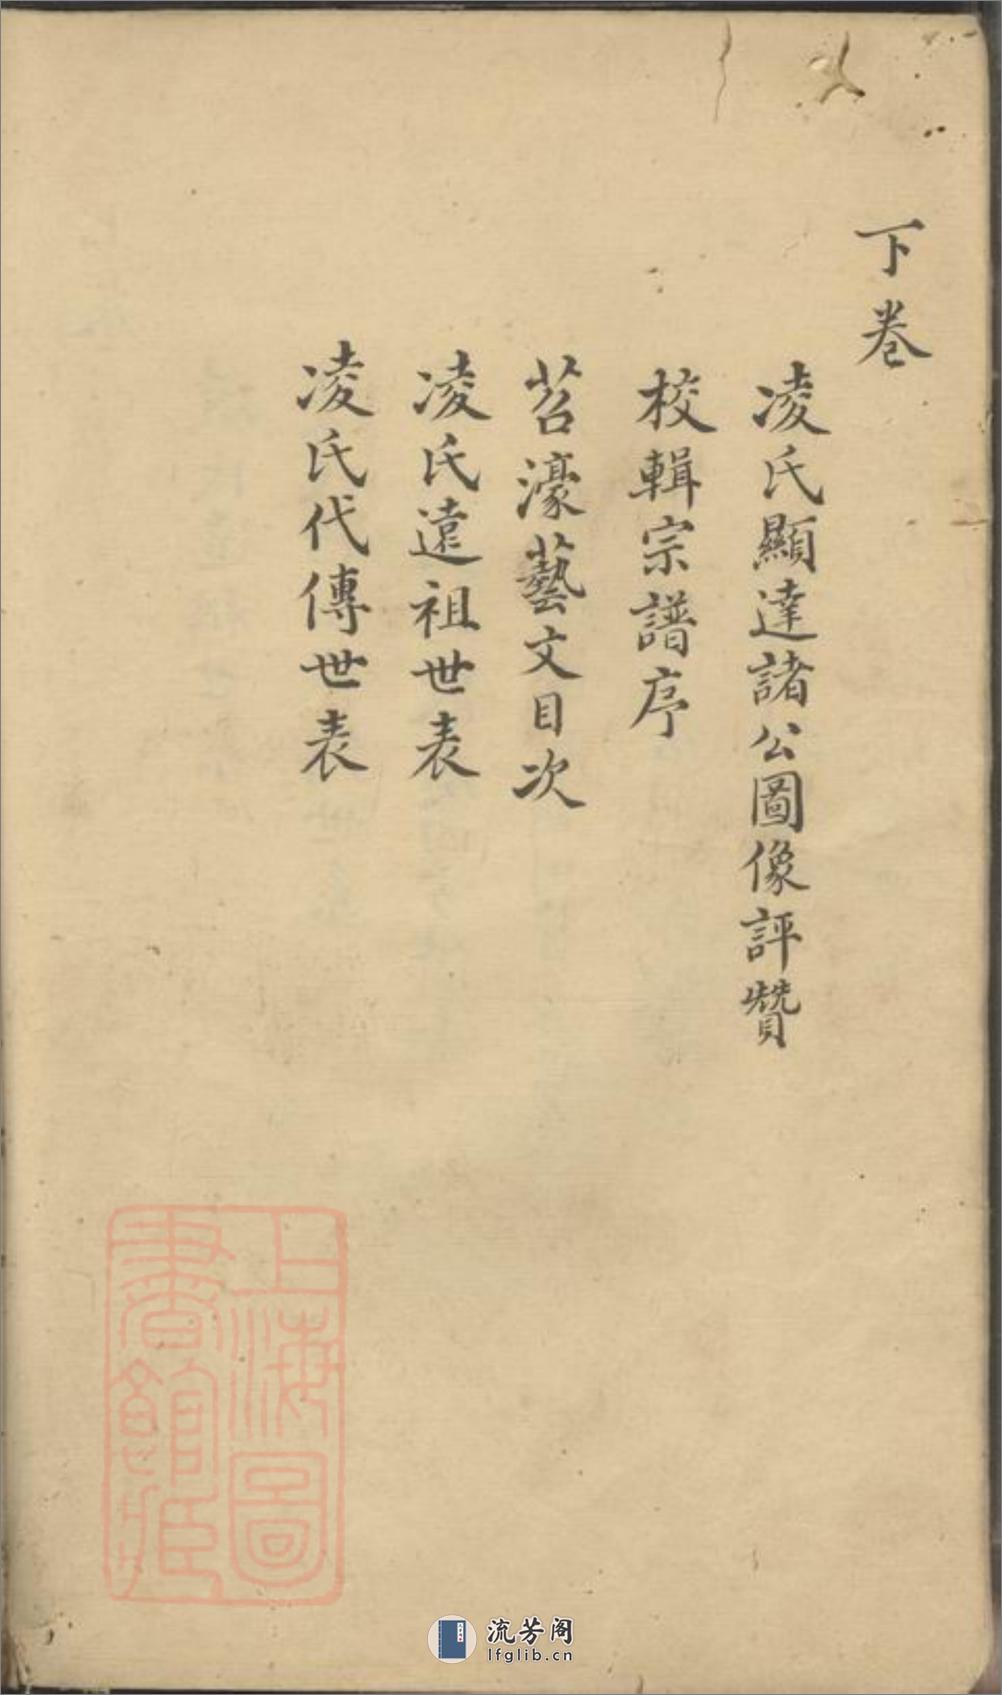 下卷
凌氏顯達諸公圖像評贊
校輯宗譜序
苕濠藝文目次
凌氏遠祖世表
凌氏代傳世表
上海圖
書館藏
流芳阁
lfglib.cn